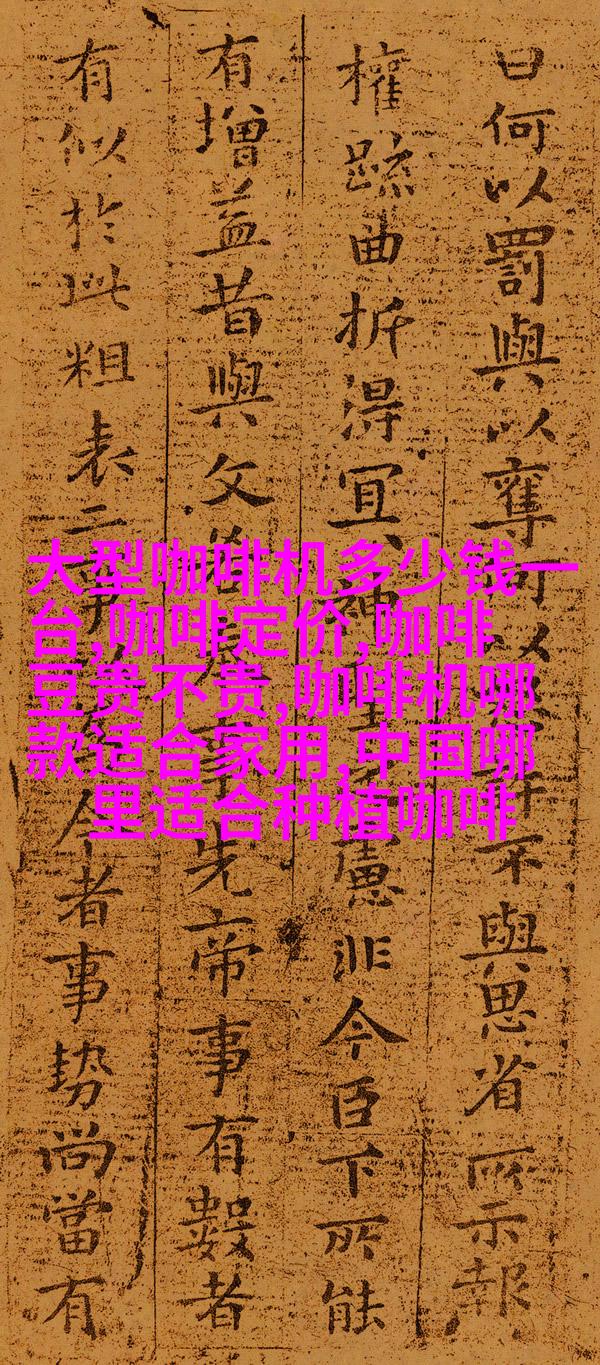 曰何以罰與以奪何以許不與思省所示報
權疏曲折得宜神聖慮非今臣下所能
有增益昔與文若事先帝事有數者
有似於此粗表二事今者事勢尚當有
大型咖啡机多少钱一
台,咖啡定价,咖啡
豆贵不贵,咖啡机哪
款适合家用,中国哪
里适合种植咖啡